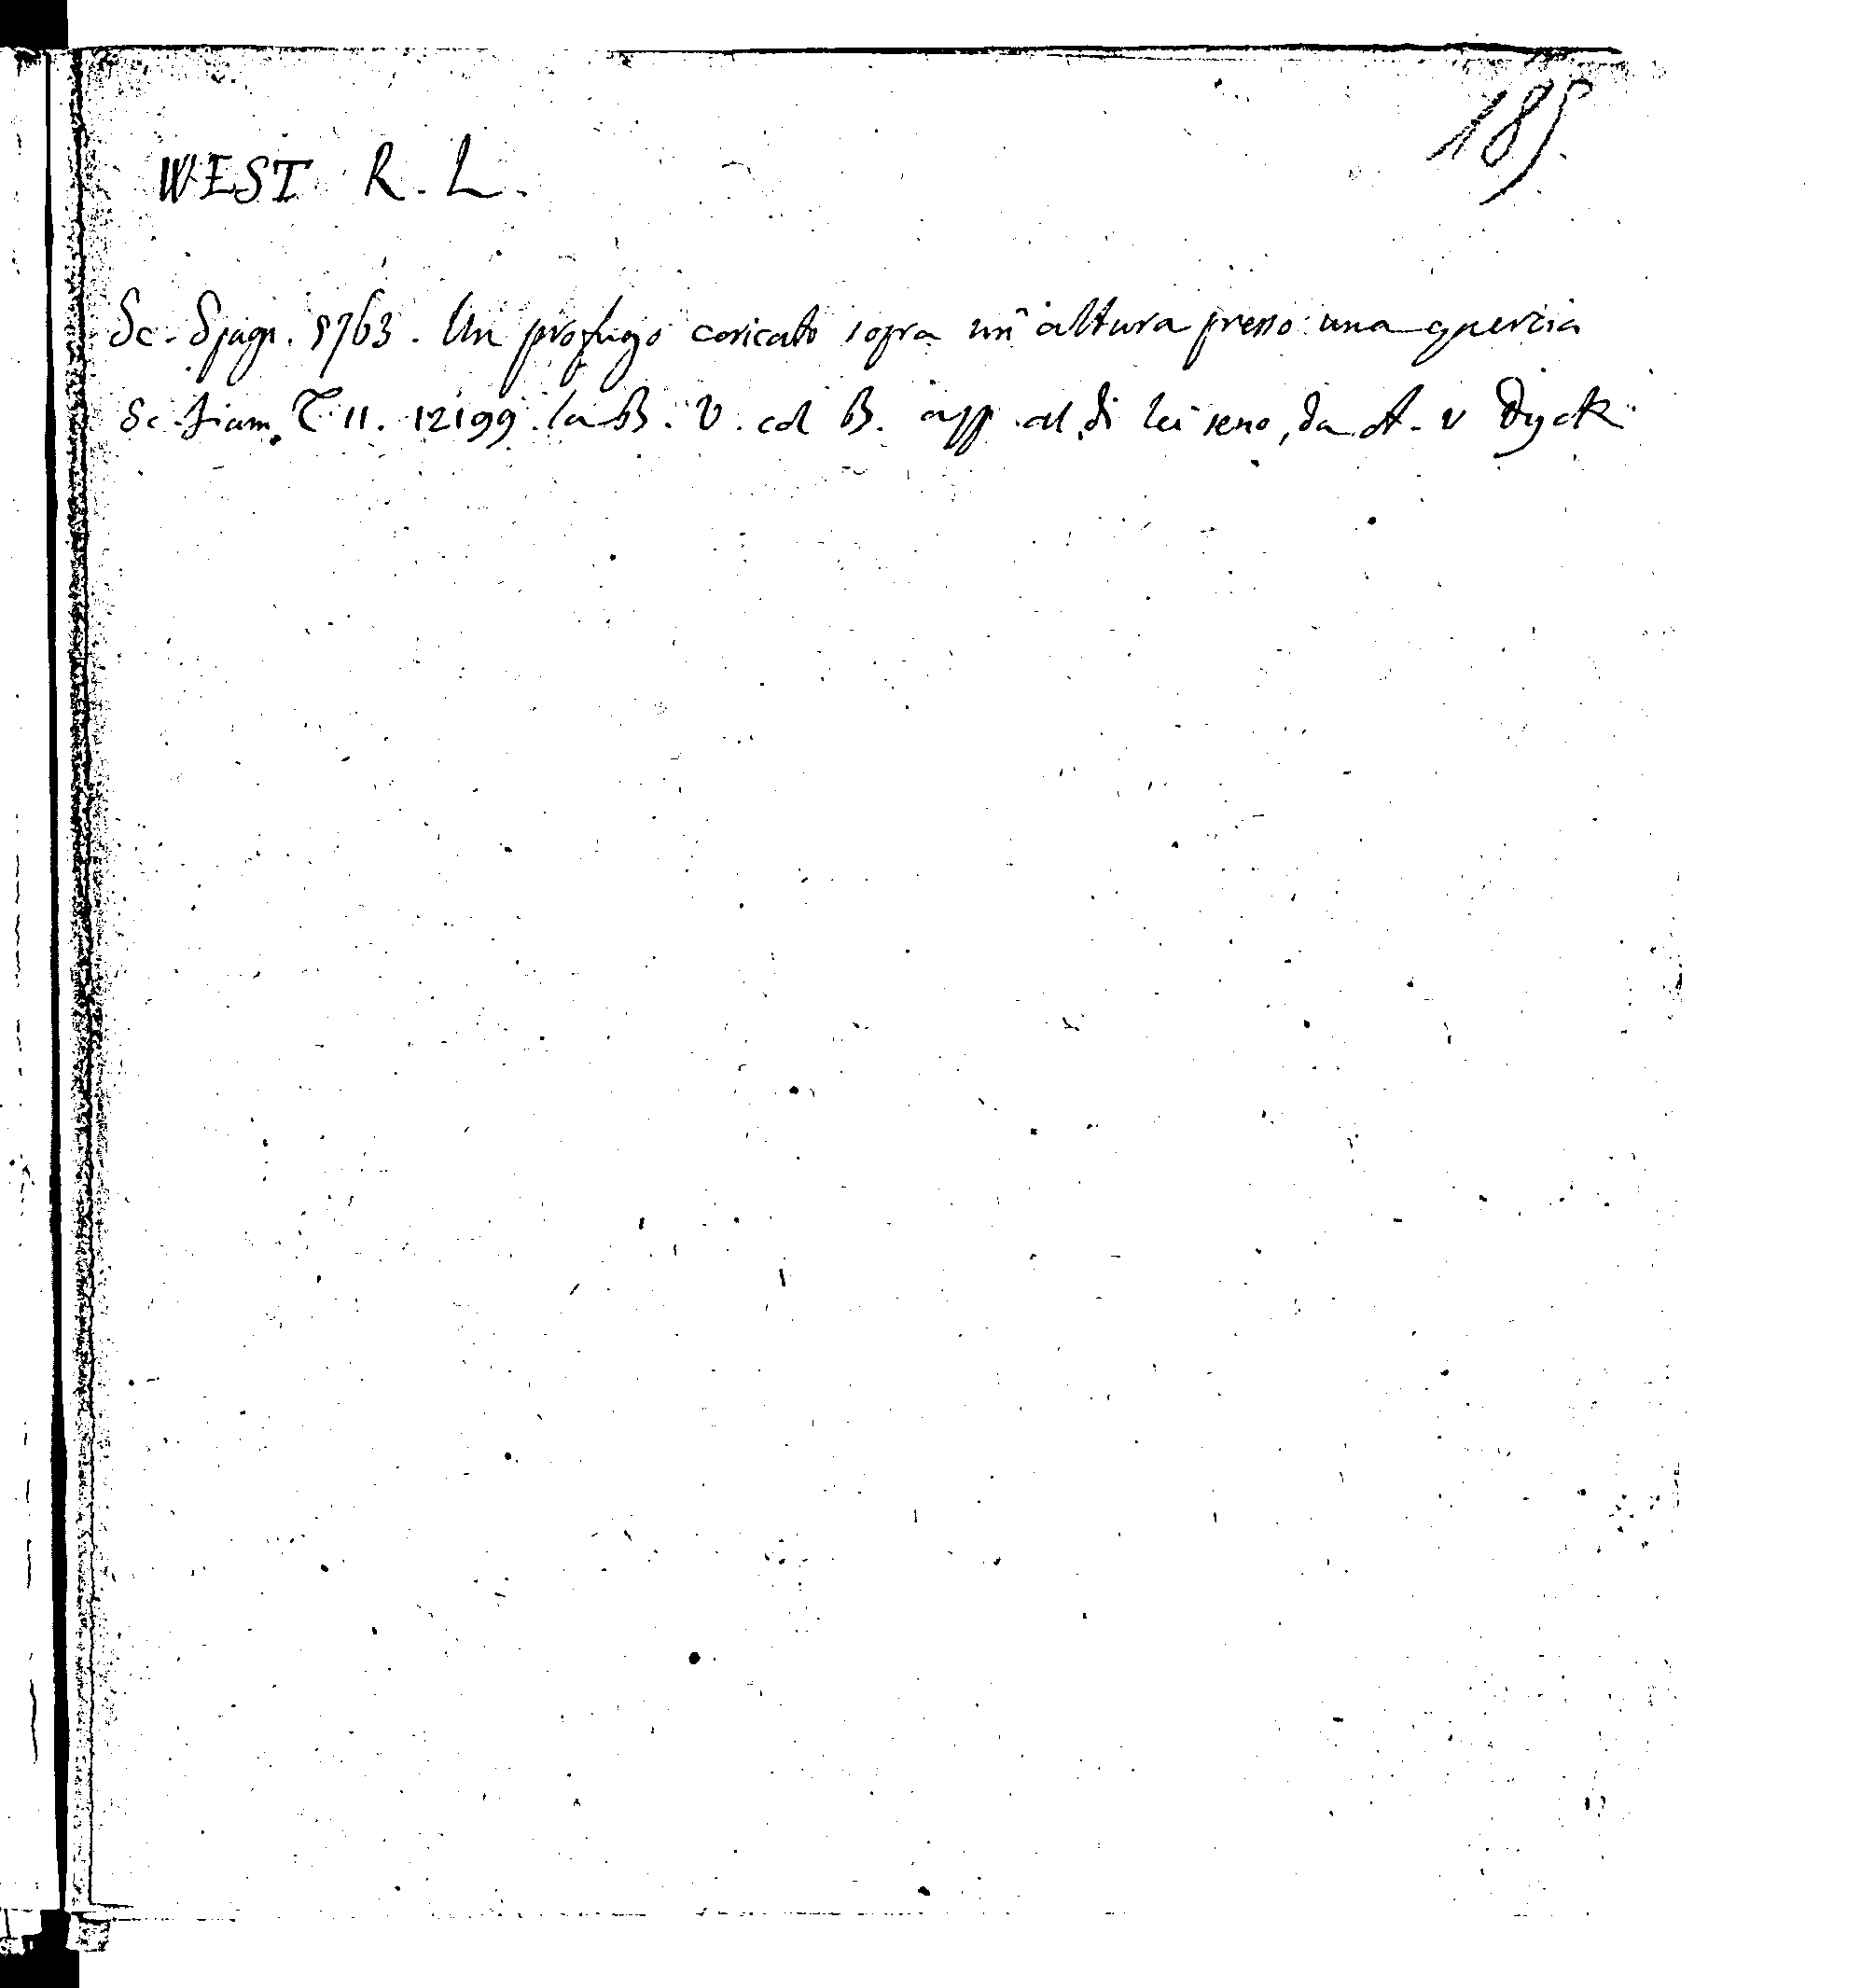 185.
WEST R. L.
Sc. Spagn. 5763. Un profugo coricato sopra un'altura presso una quercia
Sc. fiam. T. 11. 12199. la B. V. col B. app. al di lei seno, da A. v Dyck